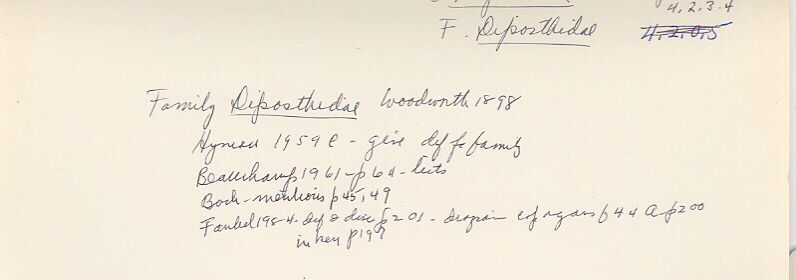 4, 2, 3.4
F. Diposthidae
4,2,0,5
Family Diposthidae Woodworth 1898
Hyman 1959e - give def for family
Beauchamp 1961 - p 62 - lists
Bock - mentions p45, 49
Faubel 1984 - Def & disc p201 - diagram cop organs f44A p200
in key p197